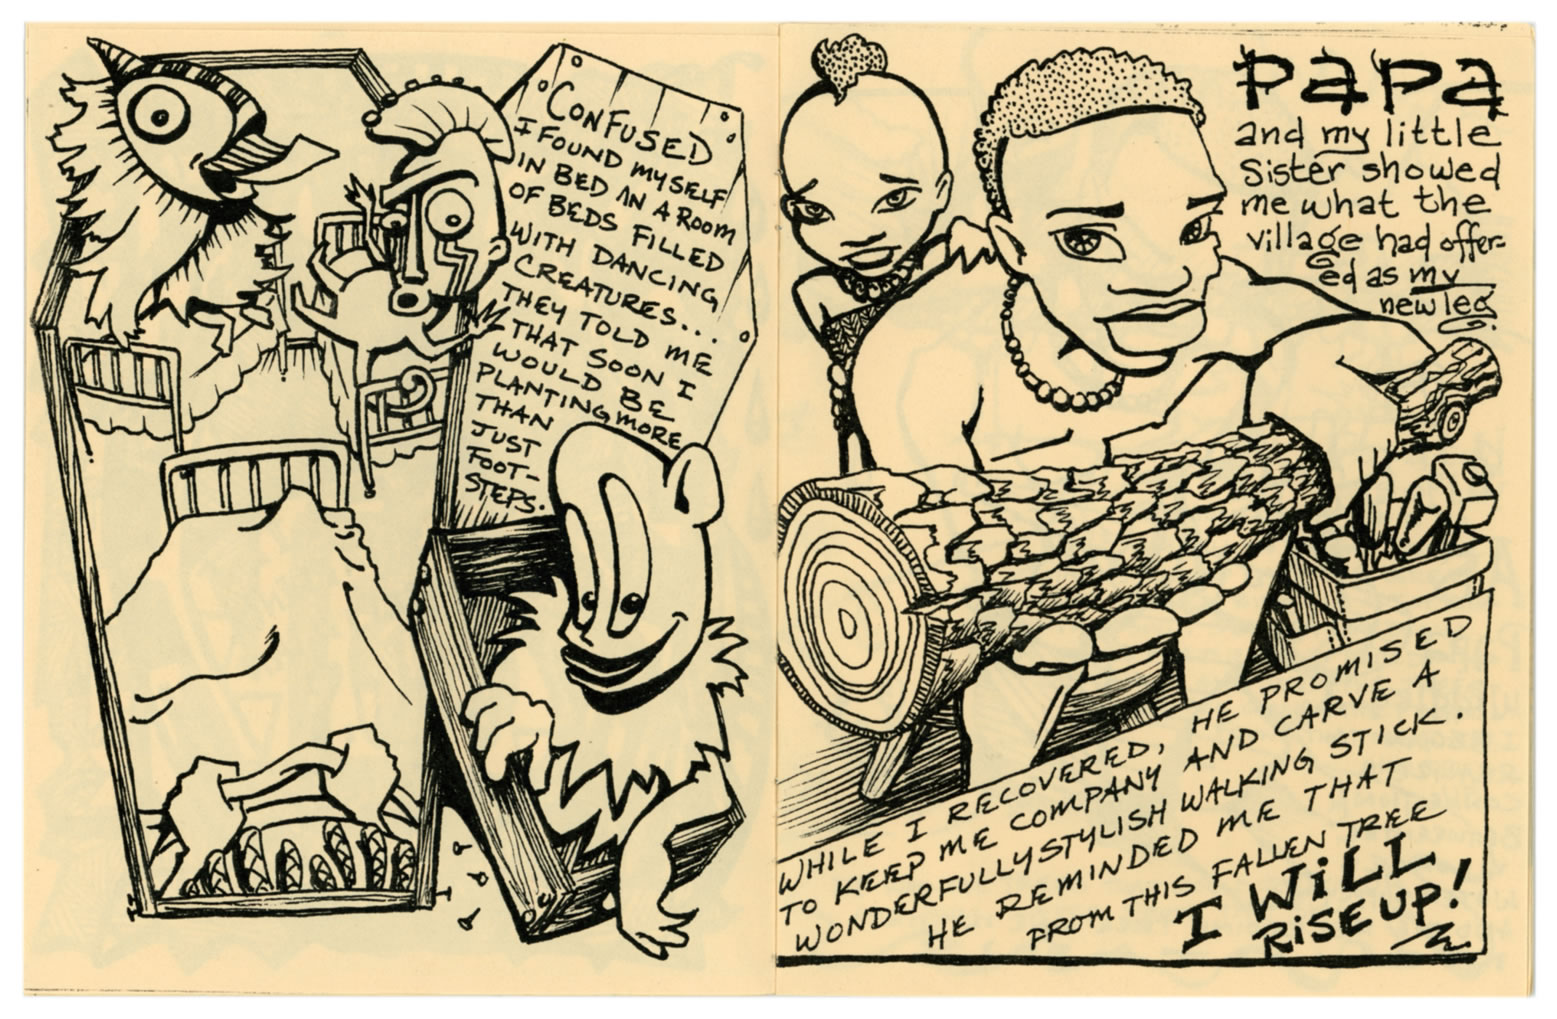 CONFUSED
I FOUND MYSELF
IN BED IN A ROOM
OF BEDS FILLED
WITH DANCING
CREATURES..
THEY TOLD ME
THAT SOON I
WOULD BE
PLANTING MORE
THAN
JUST
FOOT-
STEPS.
PAPA
and my little
Sister showed
me what the
village had offer-
ed as my
new leg.
WHILE I RECOVERED, HE PROMISED
TO KEEP ME COMPANY AND CARVE A
WONDERFULLY STYLISH WALKING STICK.
HE REMINDED ME THAT
FROM THIS FALLEN TREE
I WiLL
RiSE UP!